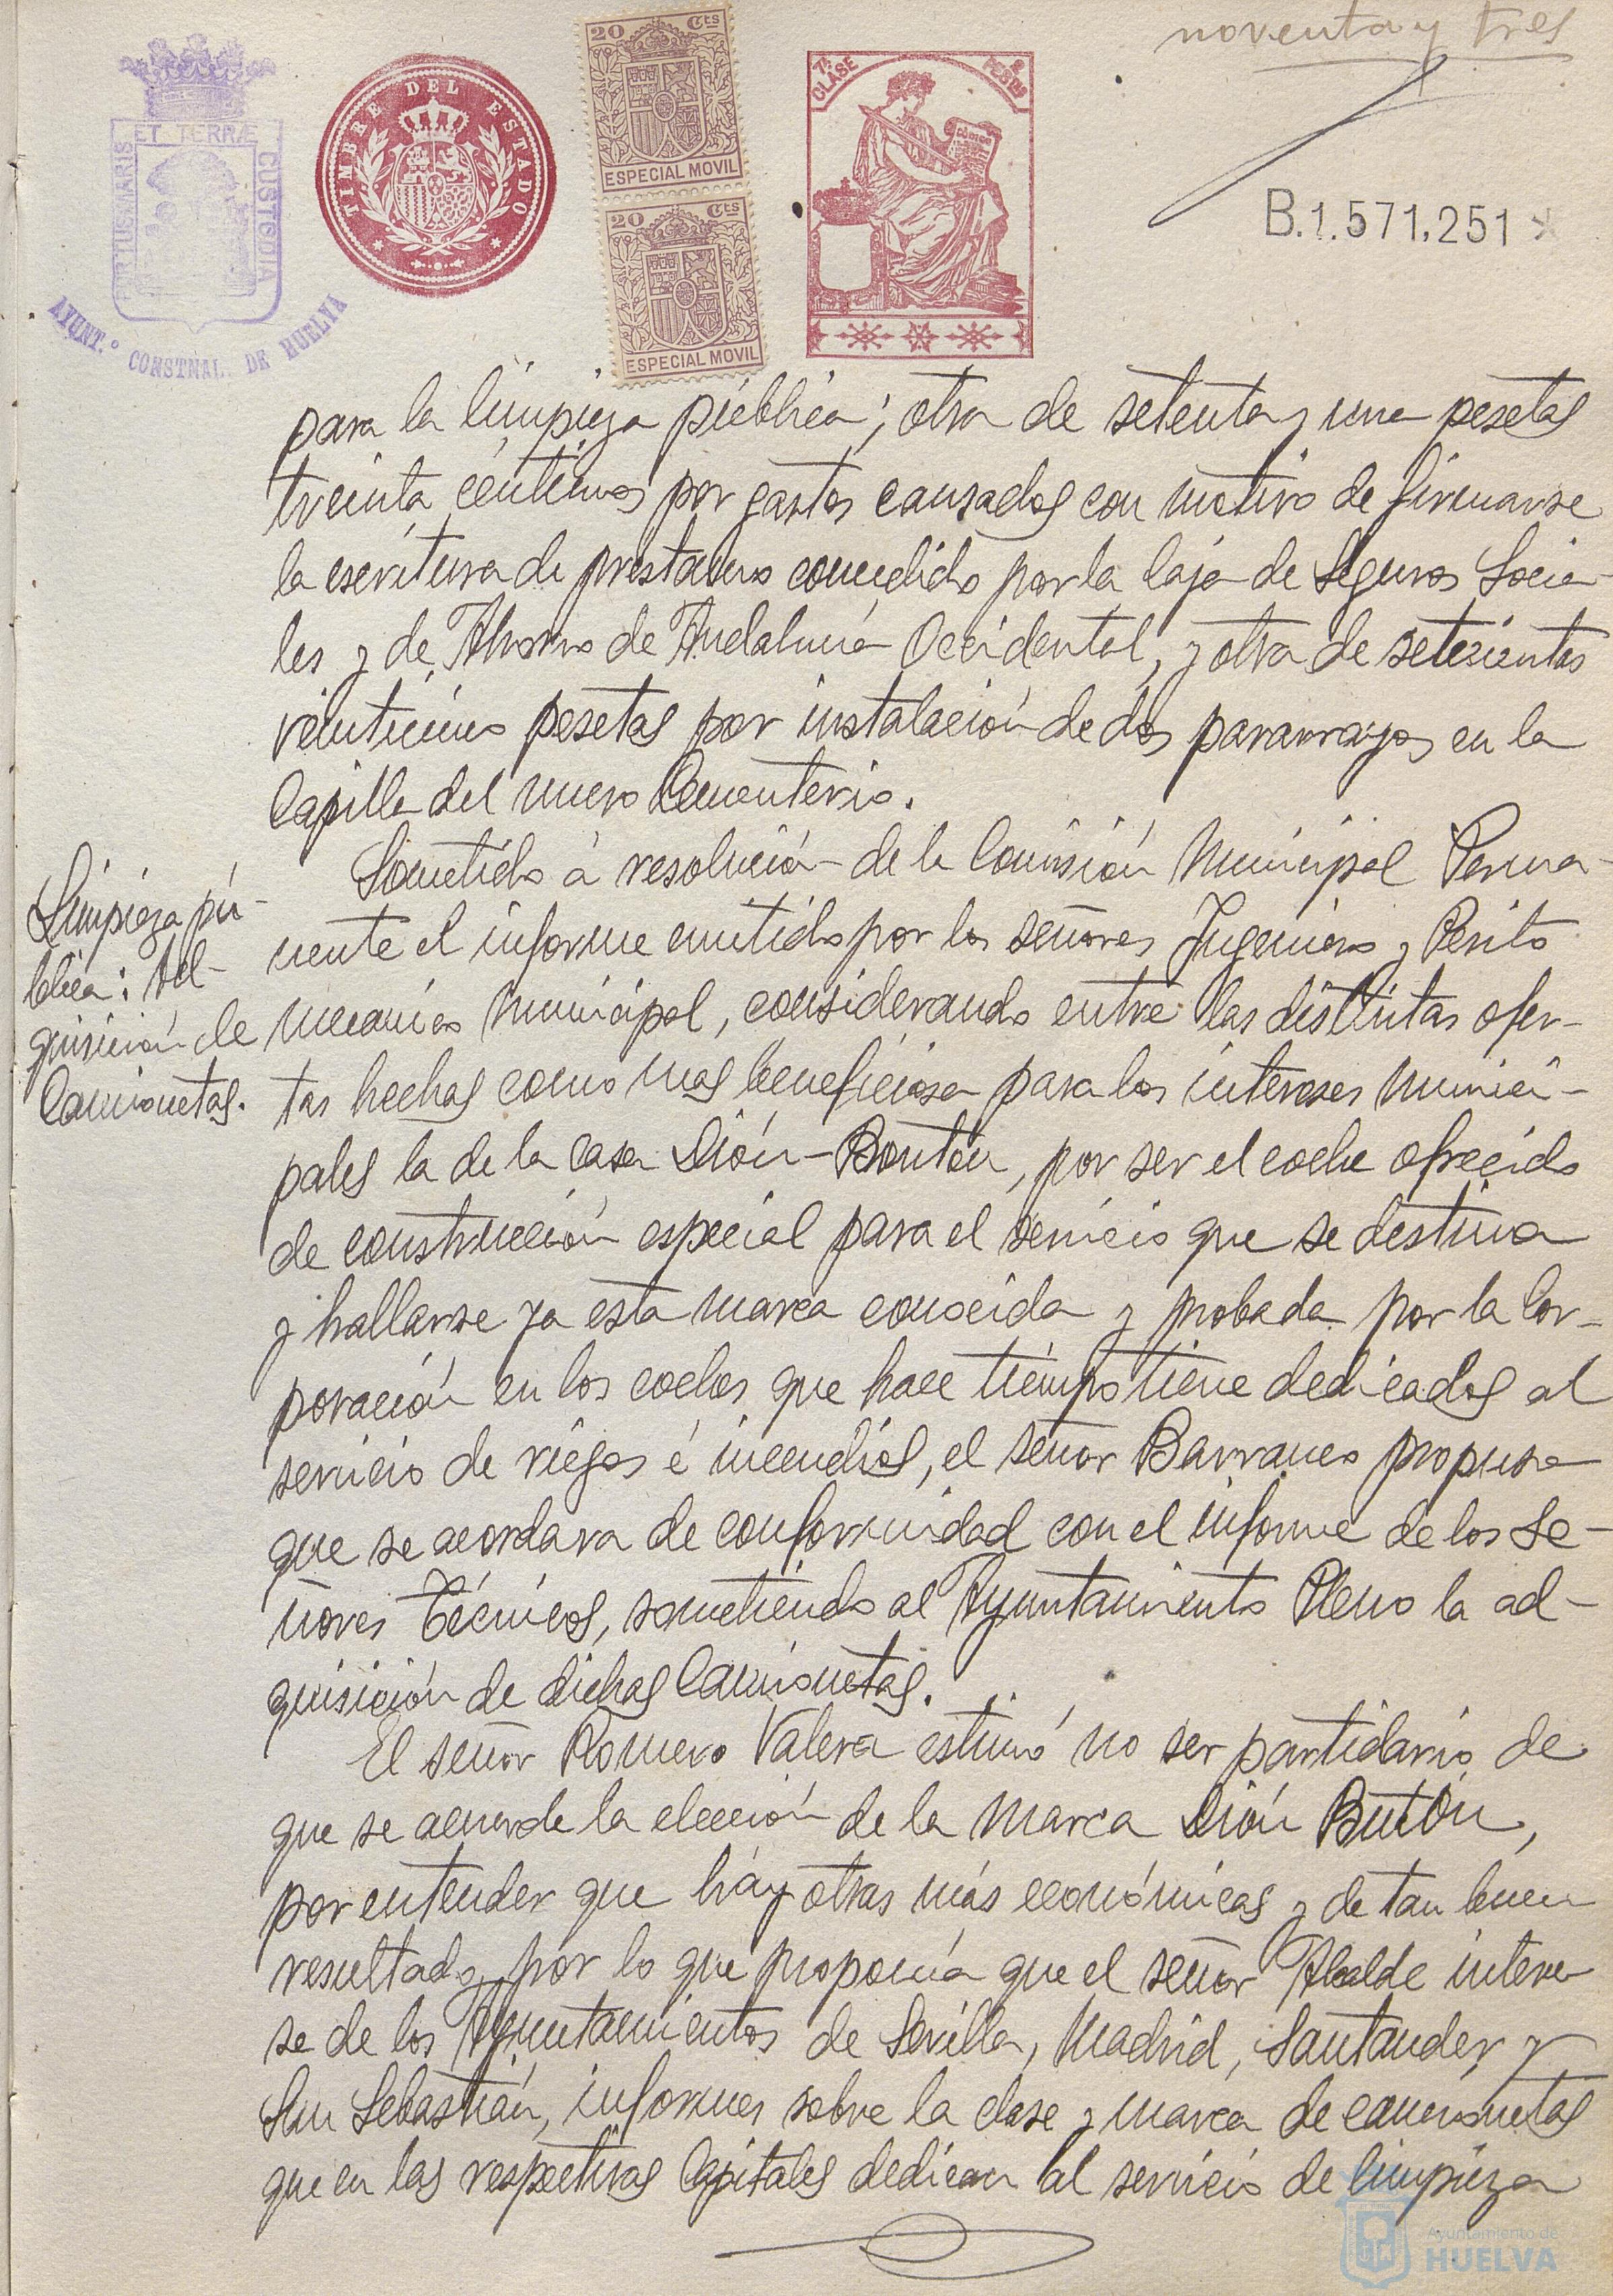 noventa y tres
PORTUS MARIS
ET TERRÆ
CUSTODIA
AYUNT.º CONSTNAL. DE HUELVA
TIMBRE DEL ESTADO
20 Cts
ESPECIAL MOVIL
20 Cts
ESPECIAL MOVIL
7ª CLASE
B.1.571.251
para la limpieza pública; otra de setenta y una pesetas
treinta céntimos por gastos causados con motivo de firmarse
la escritura de prestamo concedido por la Caja de Seguros Socia-
les y de Ahorro de Andalucía Occidental, y otra de setecientas
veinticinco pesetas por instalación de dos pararrayos en la
Capilla del nuevo Cementerio.
Limpieza pú-
blica: Ad-
quisición de
Camionetas.
Sometido á resolución de la Comisión Municipal Perma-
nente el informe emitido por los señores Ingeniero y Perito
mecanico municipal, considerando entre las distintas ofer-
tas hechas como mas beneficiosa para los intereses munici-
pales la de la casa Dión-Boutón, por ser el coche ofrecido
de construcción especial para el servicio que se destina
y hallarse ya esta marca conocida y probada por la Cor-
poración en los coches que hace tiempo tiene dedicados al
servicio de riegos é incendios, el señor Barranco propuso
que se acordara de conformidad con el informe de los Se-
ñores Técnicos, sometiendo al Ayuntamiento Pleno la ad-
quisición de dichas Camionetas.
El señor Romero Valera estimó no ser partidario de
que se acuerde la elección de la marca Dión Butón,
por entender que hay otras más económicas y de tan buen
resultado, por lo que proponía que el señor Alcalde intere
se de los Ayuntamientos de Sevilla, Madrid, Santander y
San Sebastián, informes sobre la clase y marca de camionetas
que en las respectivas Capitales dedican al servicio de limpieza
Ayuntamiento de
HUELVA